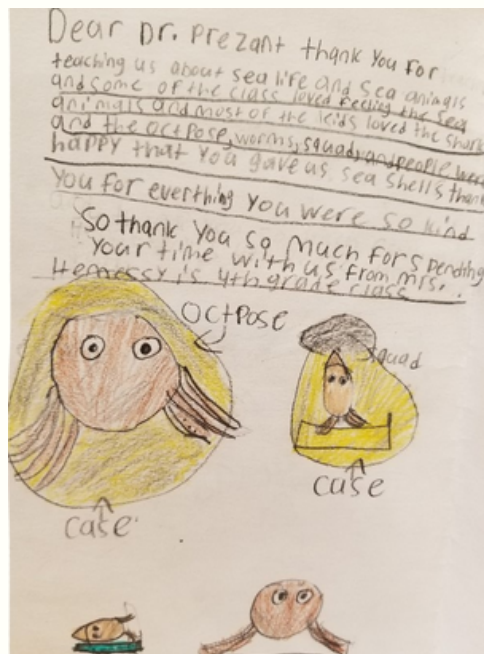 Dear Dr. Prezant thank you for
teaching us about sea life and sea animals
and some of the class loved feeling the sea
animals and most of the kids loved the shark
and the octpose, worms, squad, and people were
happy that you gave us sea shells thank
you for everthing you were so kind
So thank you so much for spending
your time with us from mrs.
Hemessy is 4th grade class
octpose
squad
case
case